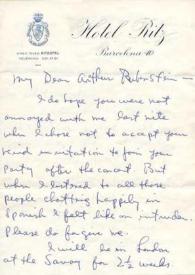 Hotel Ritz
Barcelona-10
My Dear Arthur Rubinstein —
I do hope you were not
annoyed with me last nite
when I chose not to accept your
kind invitation to join your
Party after the concert. But
when I listened to all those
people chatting happily in
Spanish I felt like an intruder
Please do forgive me.
I will be in London
at the Savoy for 2½ weeks.